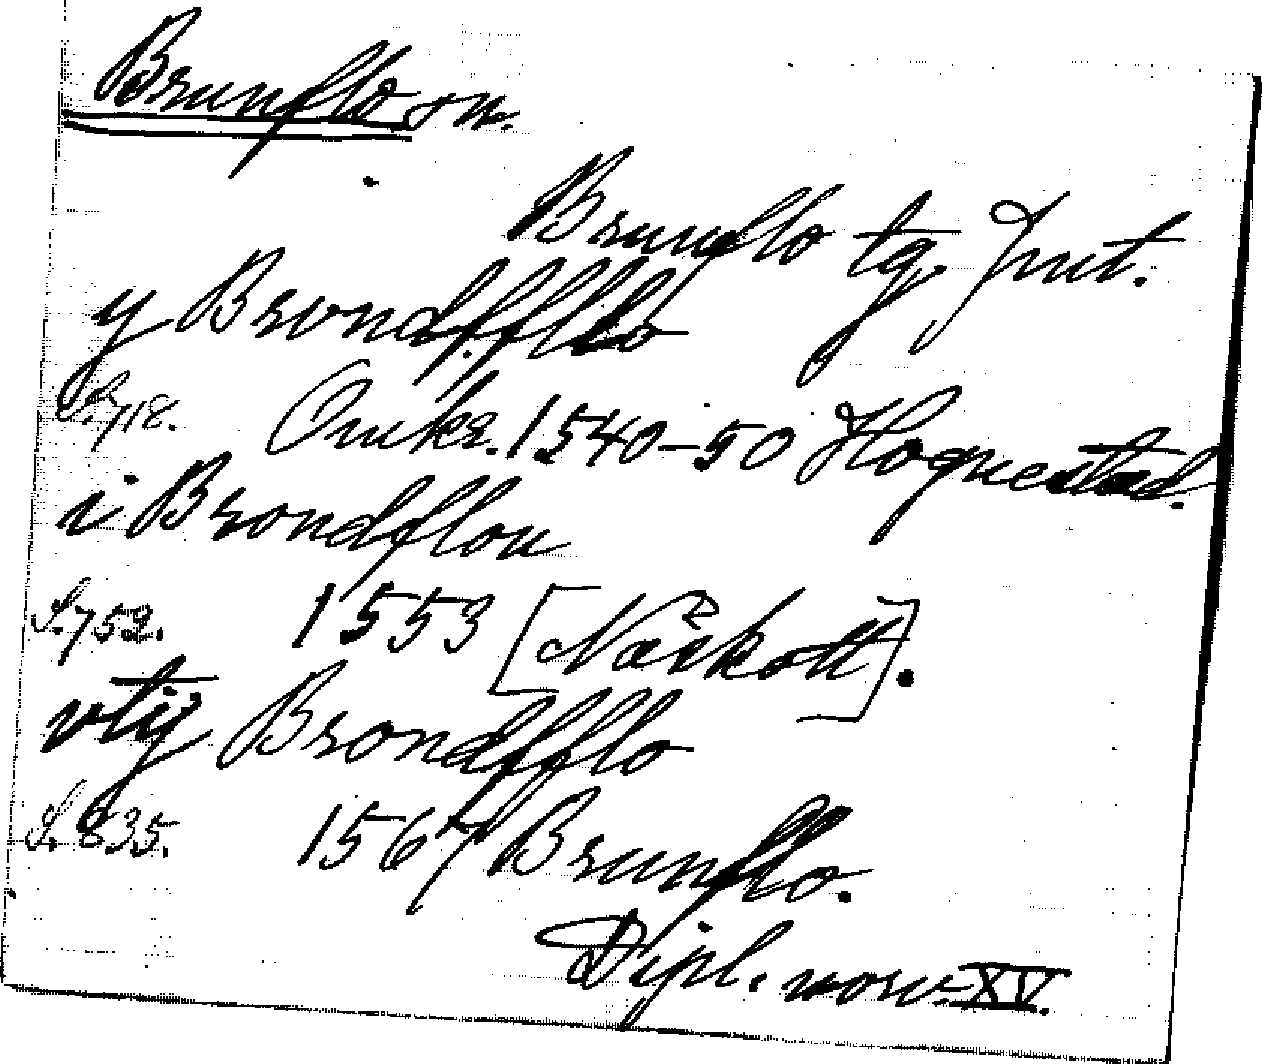 Brunflo sn.
Brunflo tg. Jmt.
y Brondffloo
S. 718. Omkr. 1540-50 Hognestad
i Brondflou
S. 752. 1553 [Näskott].
vtij Brondfflo
S. 835. 1567 Brunflo.
Dipl. norv. XV.